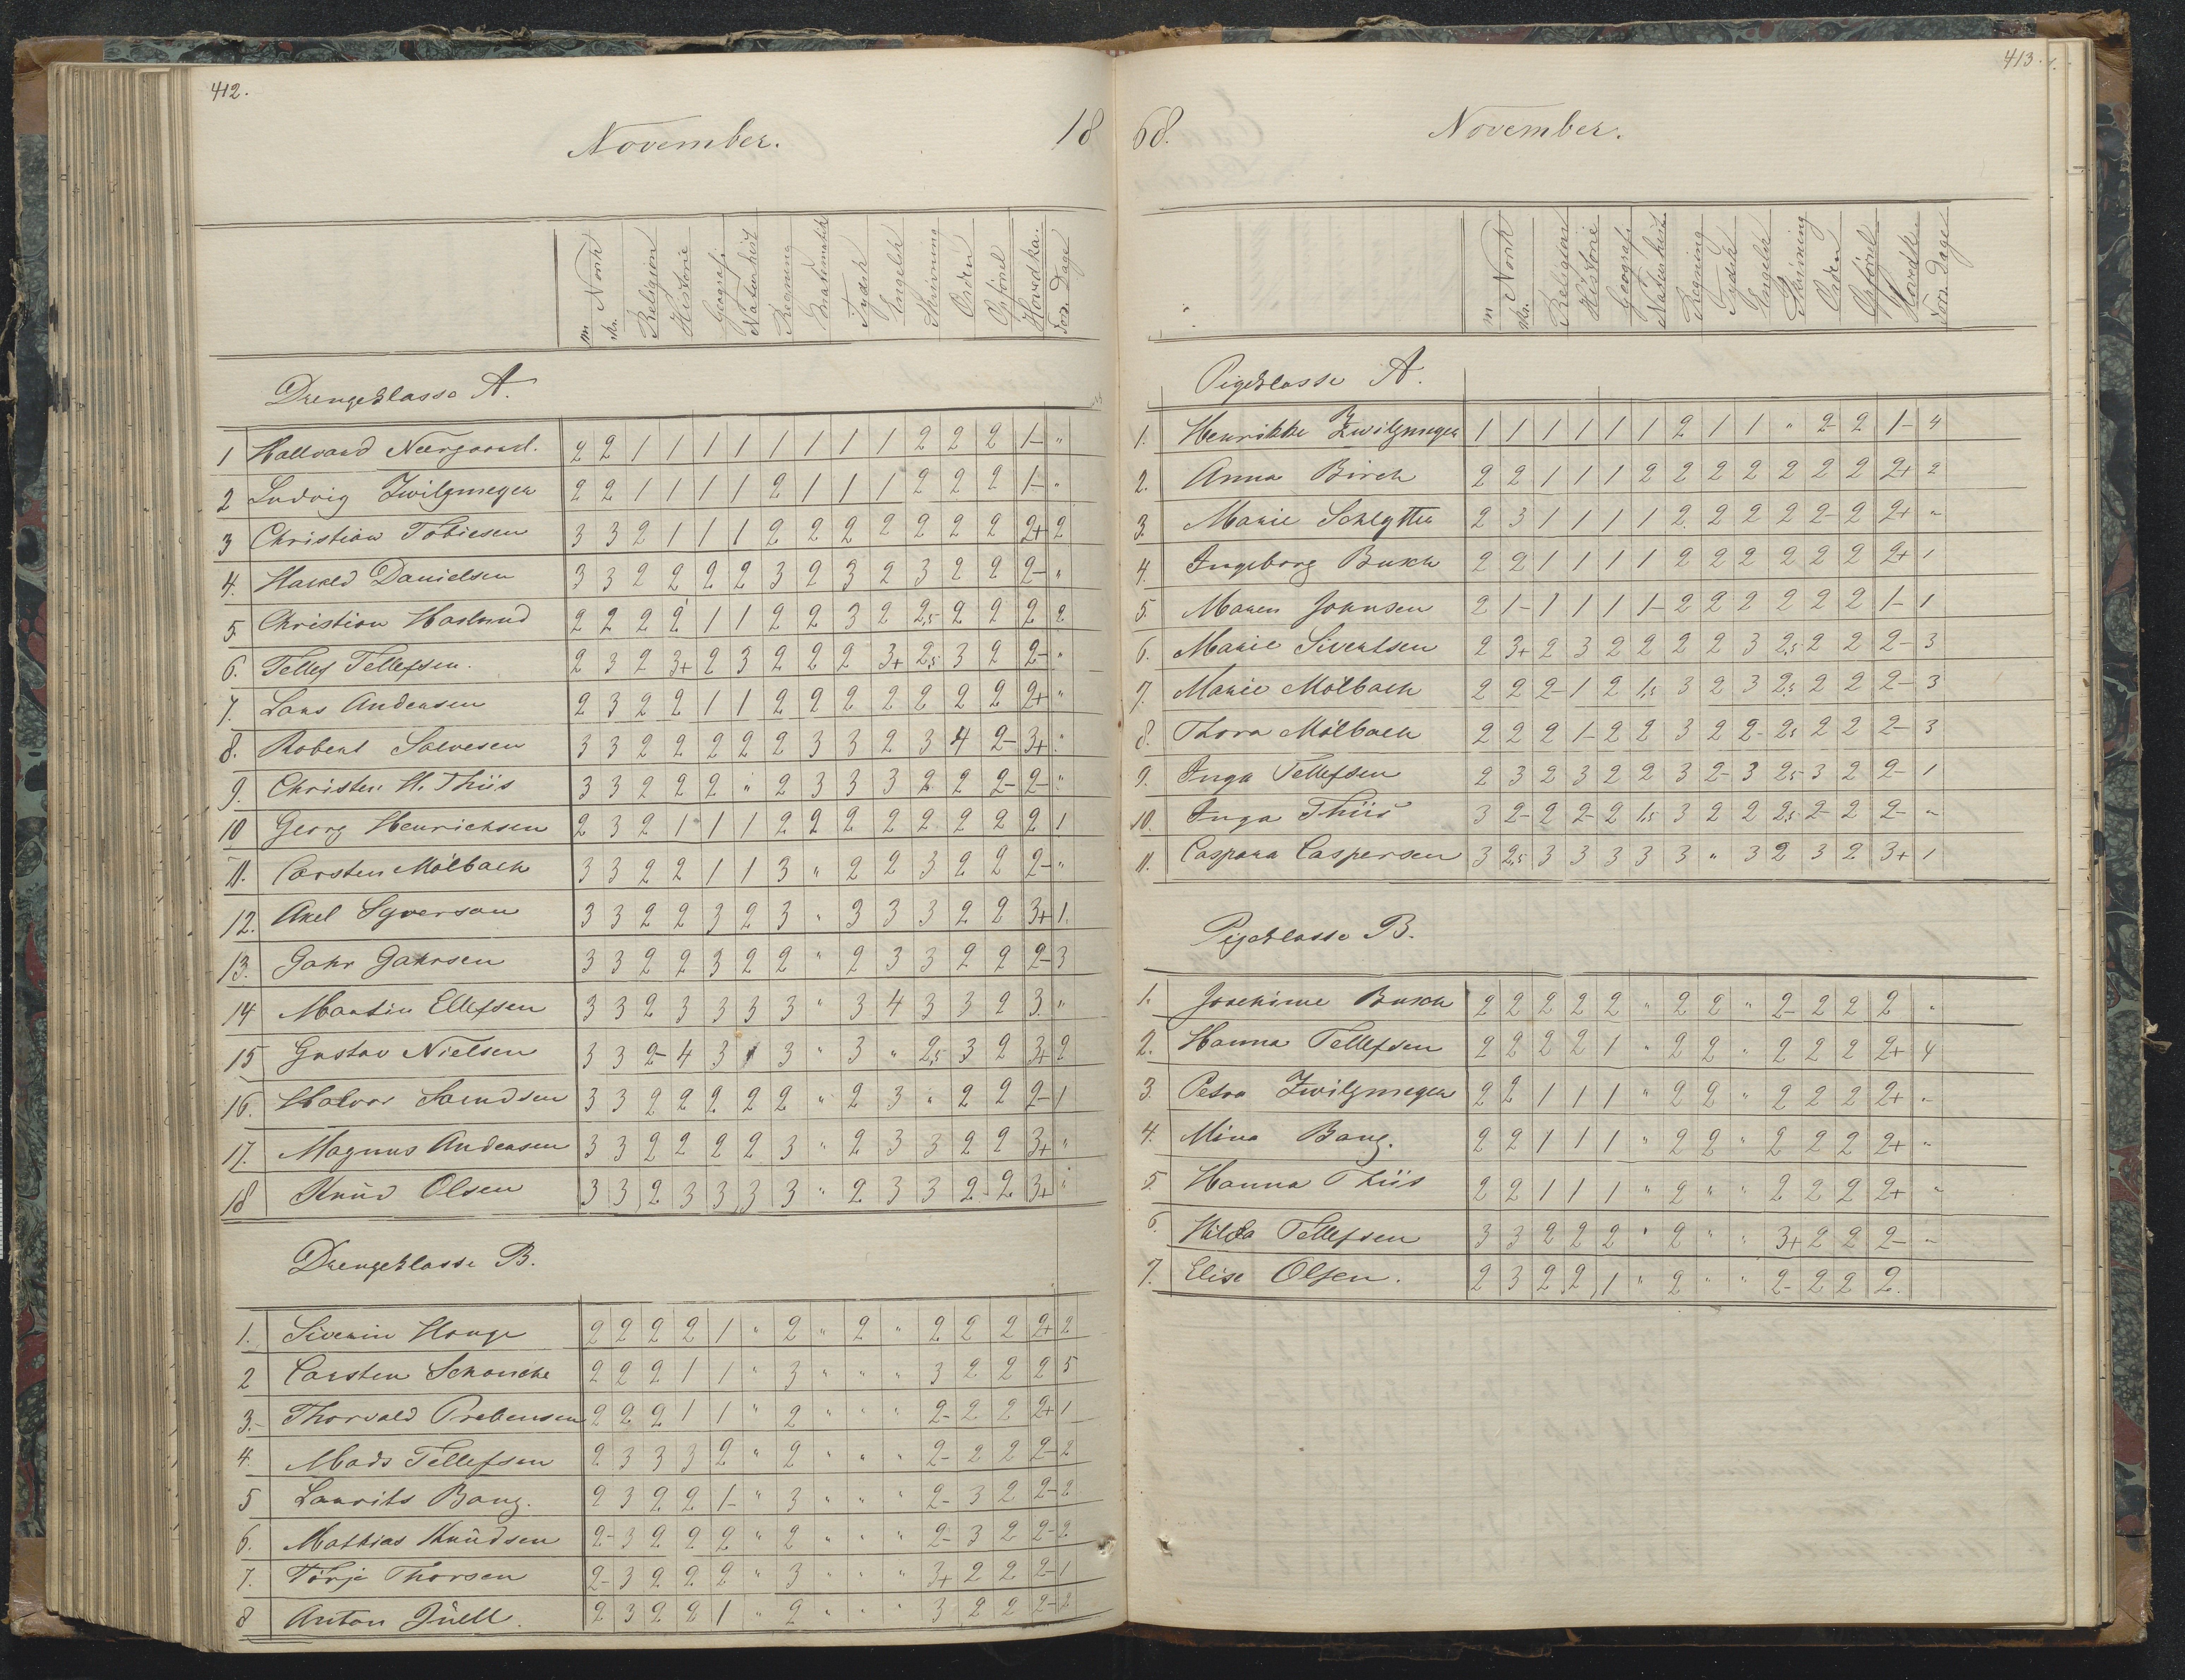 412.
November. 18
m Norsk
skr.
Religion
Historie
Geografi
Naturhist
Regning
Mathematik
Tydsk
Engelsk
Skrivning
Orden
Opførsel
Hovedka.
For. Dage
Drengeklasse A.
1 Hallvard Neergaard. 2 2 1 1 1 1 1 1 1 1 2 2 2 1- "
2 Ludvig Zwilgmeyer 2 2 1 1 1 1 2 1 1 1 2 2 2 1- "
3 Christian Tobiesen 3 3 2 1 1 1 2 2 2 2 2 2 2 2+ 2
4. Harald Danielsen 3 3 2 2 2 2 3 2 3 2 3 2 2 2- "
5. Christian Haslund 2 2 2 2 1 1 2 2 3 2 2,5 2 2 2 2
6. Tellef Tellefsen. 2 3 2 3+ 2 3 2 2 2 3+ 2,5 3 2 2- "
7. Lars Andersen 2 3 2 2 1 1 2 2 2 2 2 2 2 2+ "
8. Robert Salvesen 3 3 2 2 2 2 2 3 3 2 3 4 2- 3+ "
9. Christen H. Thiis 3 3 2 2 2 " 2 3 3 3 2 2 2- 2- "
10 Georg Henrichsen 2 3 2 1 1 1 2 2 2 2 2 2 2 2 1
11. Carsten Mölbach 3 3 2 2 1 1 3 " 2 2 3 2 2 2- "
12. Axel Syverson 3 3 2 2 3 2 3 " 3 3 3 2 2 3+ 1.
13. Jahr Jahrsen 3 3 2 2 3 2 2 " 2 3 3 2 2 2- 3
14 Martin Ellefsen 3 3 2 3 3 3 3 " 3 4 3 3 2 3. "
15 Gustav Nielsen 3 3 2- 4 3 1 3 " 3 " 2,5 3 2 3+ 2
16. Halvor Samdsen 3 3 2 2 2 2 2 " 2 3 " 2 2 2- 1
17. Magnus Andersen 3 3 2 2 2 2 3 " 2 3 3 2 2 3+ "
18 Knud Olsen 3 3 2 3 3 3 3 " 2 3 3 2- 2 3+ "
Drengeklasse B.
1. Siverin Hauge 2 2 2 2 1 " 2 " 2 " 2 2 2 2+ 2
2 Carsten Schanche 2 2 2 1 1 " 3 " " " 3 2 2 2 5
3- Thorvald Prebensen 2 2 2 1 1 " 2 " " " 2- 2 2 2+ 1
4. Mads Tellefsen 2 3 3 3 2 " 2 " " " 2- 2 2 2- 2
5 Laurits Bang. 2 3 2 2 1- " 3 " " " 2- 3 2 2- 2
6. Mathias Knudsen 2- 3 2 2 2 " 2 " " " 2- 3 2 2- 2
7. Törje Thorsen 2- 3 2 2 2 " 3 " " " 3+ 2 2 2- 1
8 Anton Juell. 2 3 2 2 1 " 2 " " " 3 2 2 2- 2
413.
68. November.
m Norsk
skr.
Religion
Historie
Geografi
Naturhist
Regning
Tydsk
Engelsk
Skrivning
Orden
Opførsel
Hovedk.
For. Dage
Pigeklasse A.
1. Henrikke B Zwilgmeyer 1 1 1 1 1 1 2 1 1 " 2- 2 1- 4
2. Anna Birch 2 2 1 1 1 2 2 2 2 2 2 2 2+ 2
3. Marie Schlytter 2 3 1 1 1 1 2 2 2 2 2- 2 2+ "
4. Ingeborg Busch 2 2 1 1 1 1 2 2 2 2 2 2 2+ 1
5. Maren Johnsen 2 1- 1 1 1 1- 2 2 2 2 2 2 1- 1
6. Marie Sivertsen 2 3+ 2 3 2 2 2 2 3 2,5 2 2 2- 3
7. Marie Mölbach 2 2 2- 1 2 1,5 3 2 3 2,5 2 2 2- 3
8. Thora Mölbach 2 2 2 1- 2 2 3 2 2- 2,5 2 2 2- 3
9. Inga Tellefsen 2 3 2 3 2 2 3 2- 3 2,5 3 2 2- 1
10. Inga Thiis 3 2- 2 2- 2 1,5 3 2 2 2,5 2- 2 2- "
11. Caspara Caspersen 3 2,5 3 3 3 3 3 " 3 2 3 2 3+ 1
Pigeklasse B.
1. Joachime Busch 2 2 2 2 2 " 2 2 " 2- 2 2 2 "
2. Hanna Tellefsen 2 2 2 2 1 " 2 2 " 2 2 2 2+ 4
3. Petra Zwilgmeyer 2 2 1 1 1 " 2 2 " 2 2 2 2+ "
4. Mina Bang. 2 2 1 1 1 " 2 2 " 2 2 2 2+ "
5. Hanna Thiis 2 2 1 1 1 " 2 " " 2 2 2 2+ "
6. Hilda Tellefsen 3 3 2 2 2 " 2 " " 3+ 2 2 2- "
7. Elise Olsen. 2 3 2 2 1 " 2 " " 2- 2 2 2.